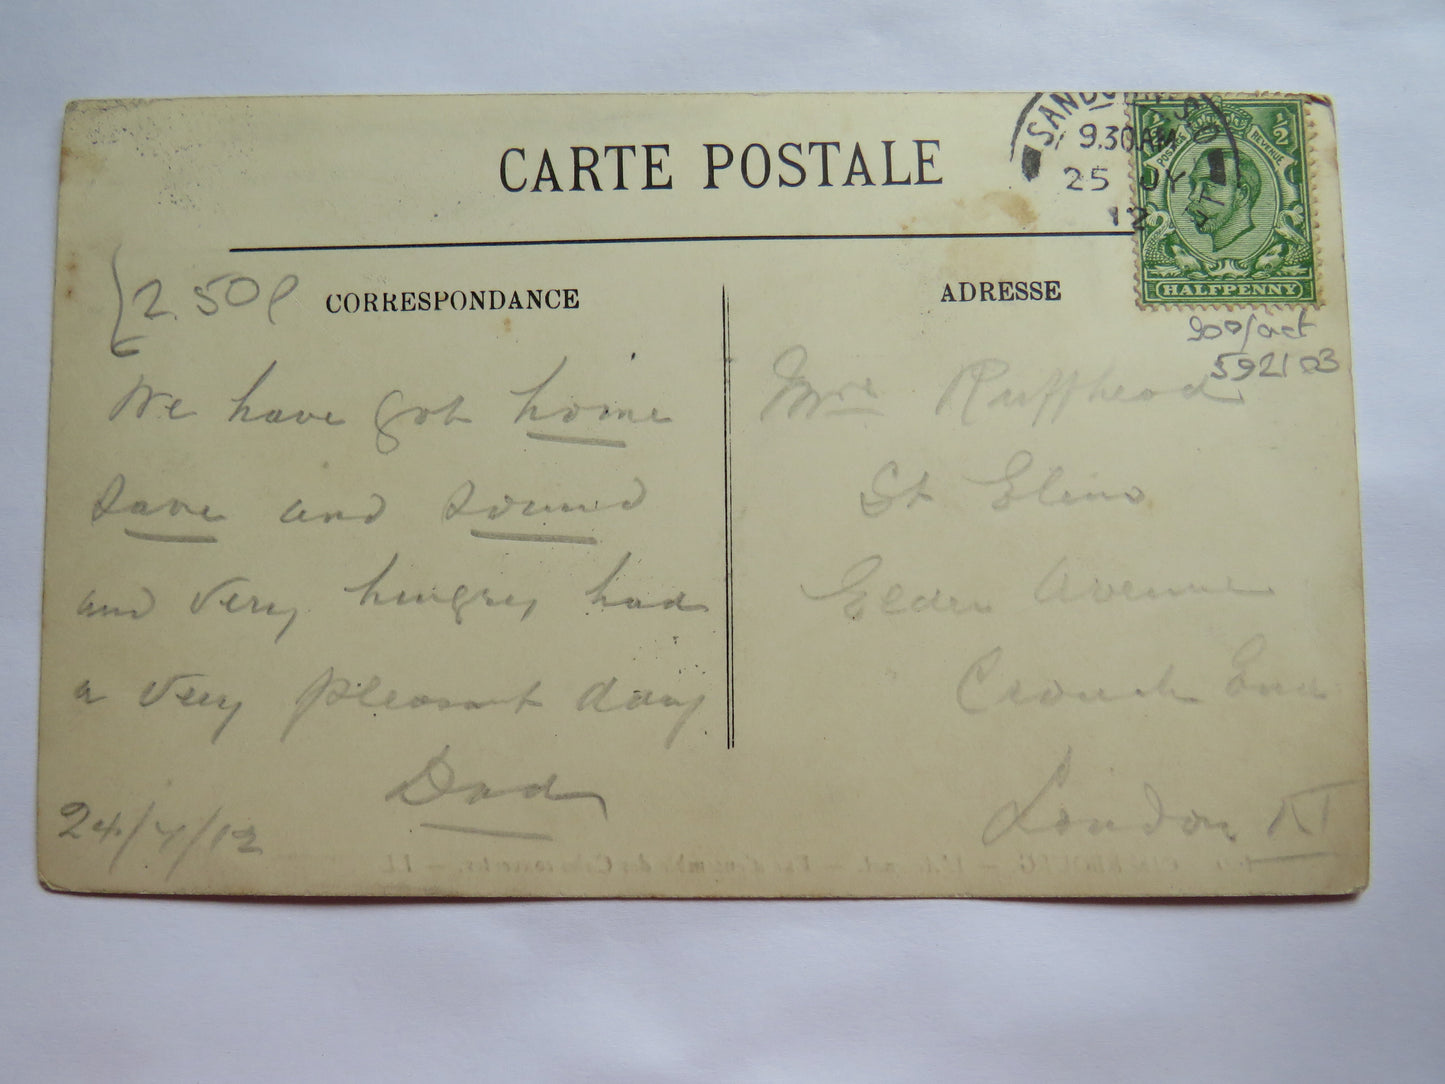 CARTE POSTALE
9.30AM
25 JY
12
½ ½
POSTAGE REVENUE
HALFPENNY
2.50
CORRESPONDANCE
We have got home
save and sound
and very hungry had
a very pleasant day
Dad
24/7/12
ADRESSE
592103
Mrs Ruffhead
St Elmo
Elder Avenue
Crouch End
London N